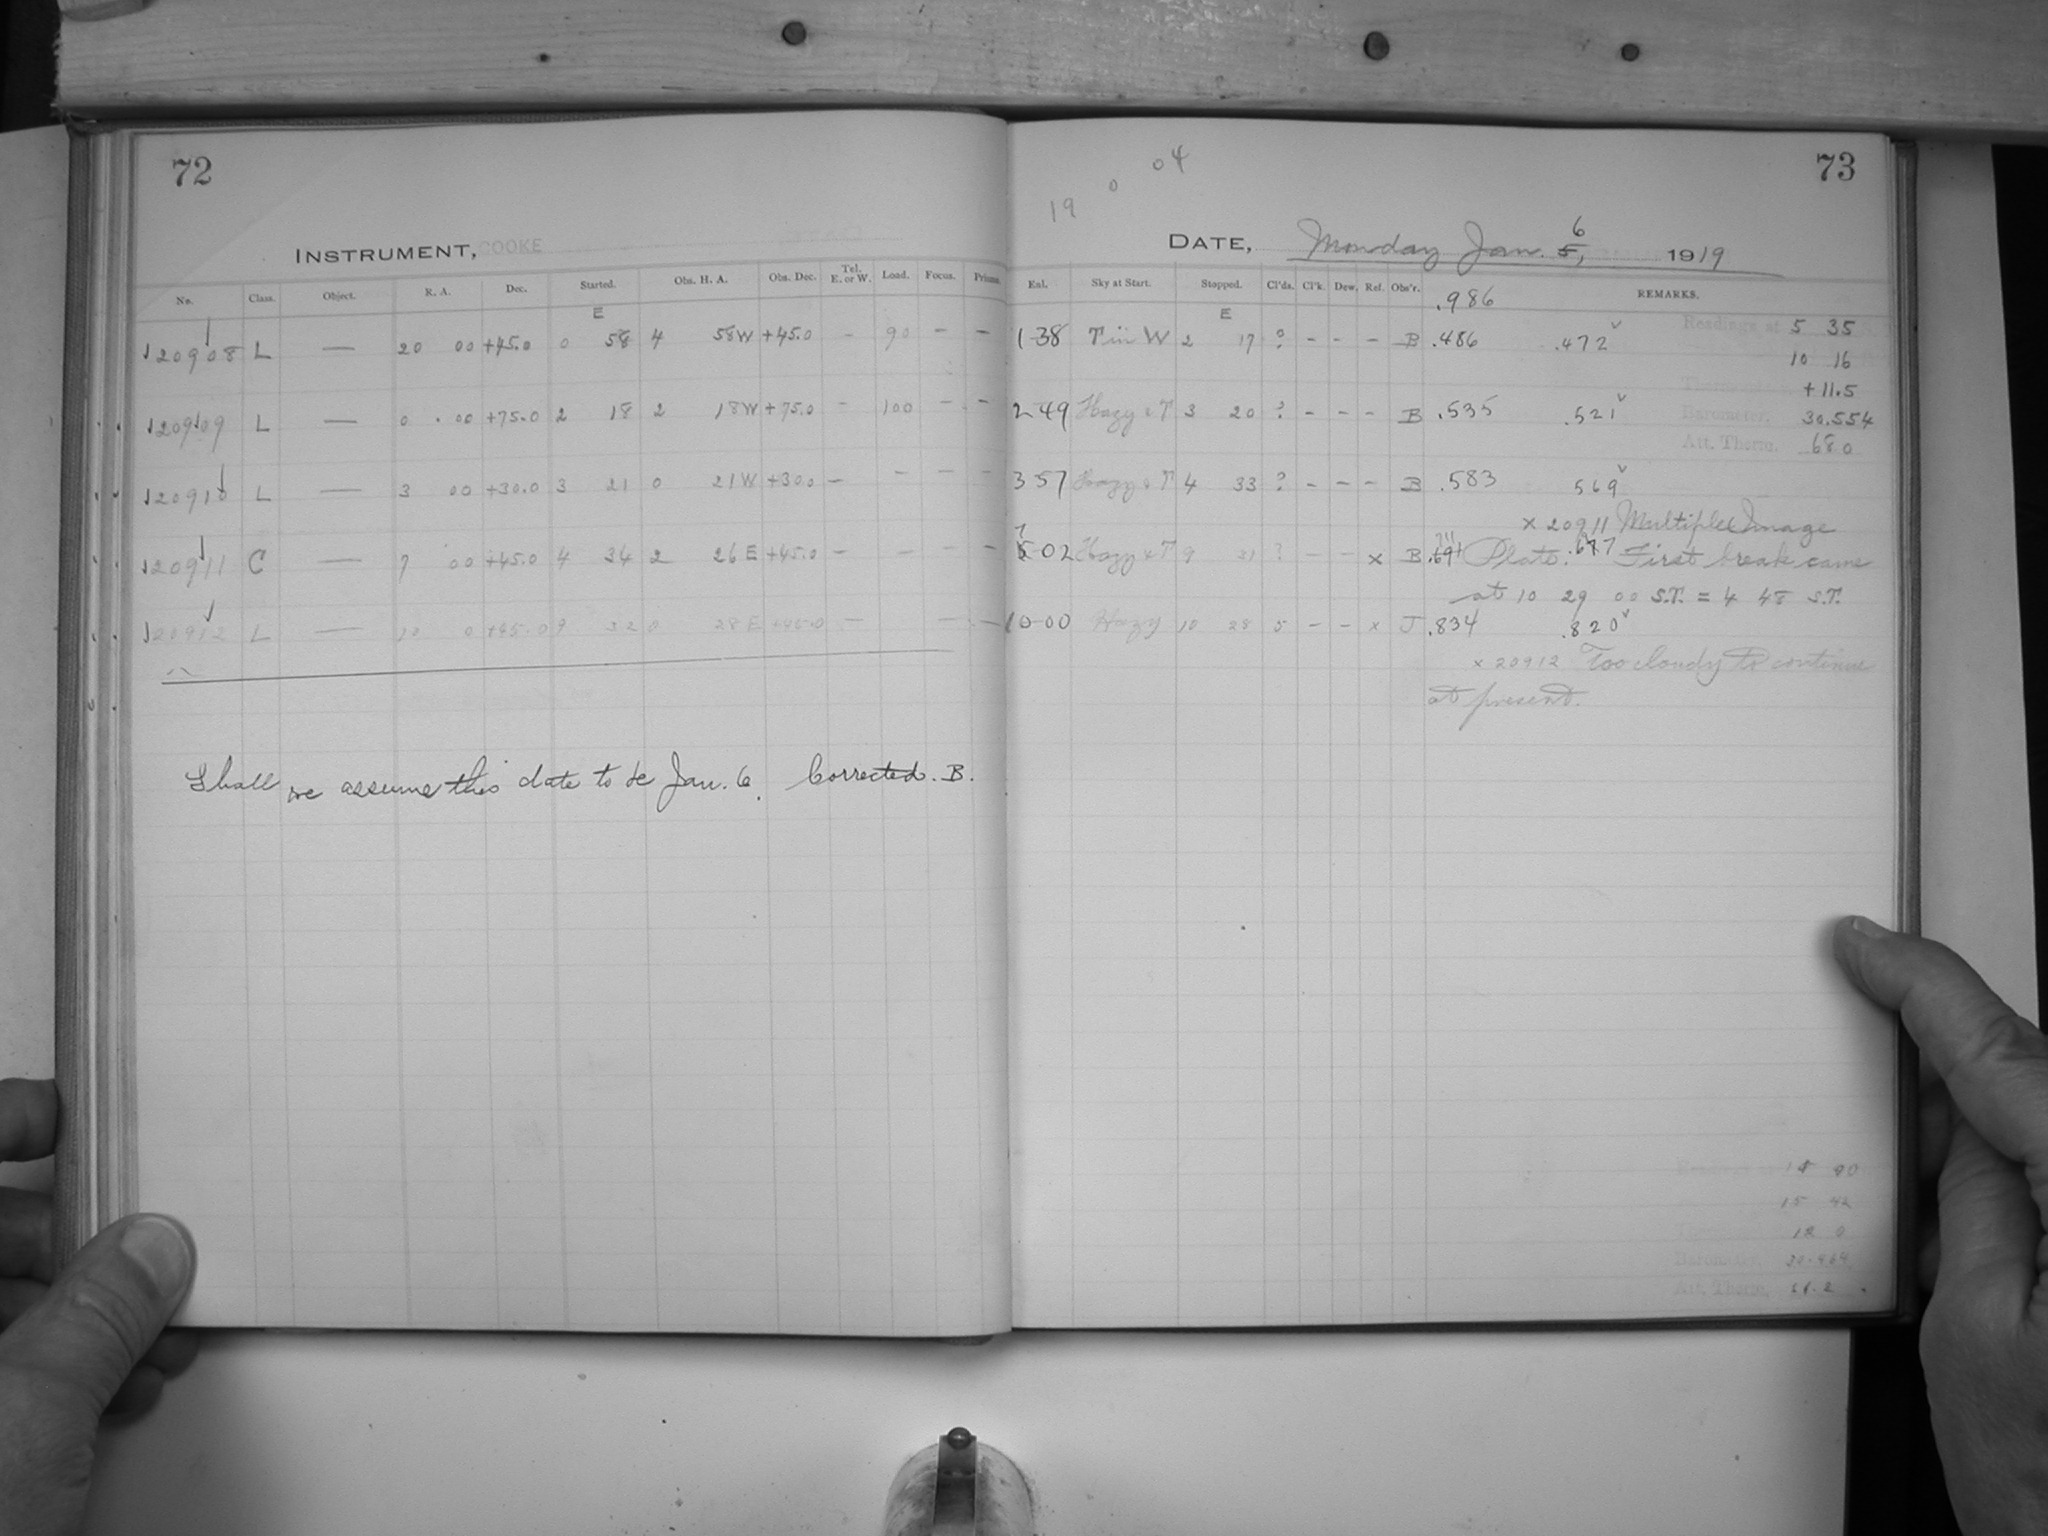 72
INSTRUMENT, COOKE
No. Class. Object. R. A. Dec. Started. Obs. H. A. Obs. Dec. Tel. E. or W. Load. Focus. Prisms.
E
20908 L — 20 00 +45.0 0 58 4 58 W +45.0 - 90 - -
20909 L — 0 00 +75.0 2 18 2 18 W +75.0 - 100 - -
20910 L — 3 00 +30.0 3 21 0 21 W +30.0 - - - -
20911 C — 7 00 +45.0 4 34 2 26 E +45.0 - - - -
20912 L — 10 0 +45.0 9 32 0 28 E +45.0 - - -
Shall we assume this date to be Jan. 6. Corrected. B.
19 0 04
73
DATE, Monday Jan. 5, 6 1919
Exl. Sky at Start. Stopped. Cl'ds. Cl'k. Dew. Ref. Obs'r. REMARKS.
.986
E
1 38 T in W 2 17 ? - - - B .486 .472 Readings at 5 35
10 16
+11.5
2 49 Hazy & T 3 20 ? - - - B .535 .521 Barometer. 30.554
Att. Therm. 68.0
3 57 Hazy & T 4 33 ? - - - B .583 569
x 20911 Multiple Image
7 02 Hazy & T 9 31 ? - - x B Plate. .677 First break came
at 10 29 00 S.T. = 4 48 S.T.
10-00 Hazy 10 28 5 - - x J .834 .820
x 20912 Too cloudy to continue
at present.
Readings at
15 42
18 0
Barometer. 30.464
Att. Therm.